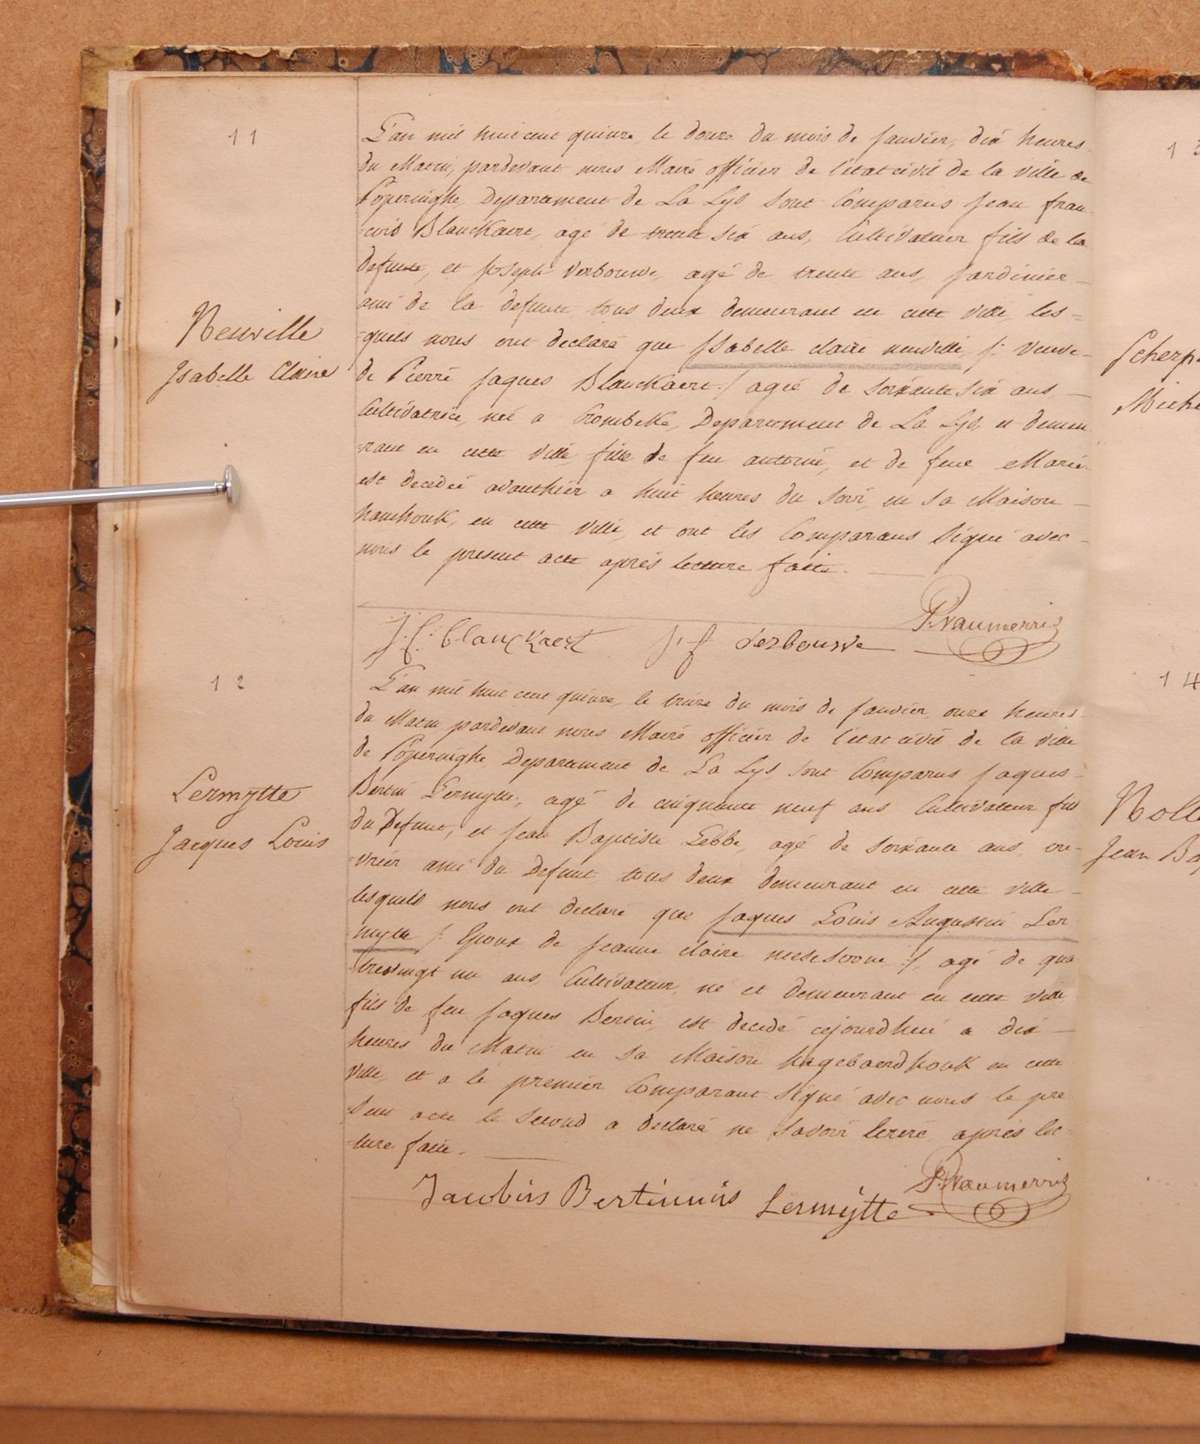 11
L'an mil huit cent quinze, le douze du mois de Janvier, dix heures
du Matin, pardevant nous Maire officier de l'état civil de la ville de
Poperinghe, Departement de La Lys sont Comparus Jean fran-
-cois Blanckaere, agé de trente six ans, Cultivateur fils de la
defunte, et Joseph Verbouwe, agé de trente ans, Jardinier
ami de la defunte tous deux demeurant en cette ville les=
-quels nous ont declaré que Isabelle claire neuville /: veuve
de Pierre Jaques Blanckaert :/ agée de soixante six ans,
Cultivatrice, neé a Crombeke, Departement de La Lys, et demeu
rant en cette ville, fille de feu antoine, et de feue Marie
est decedeé avanthier a huit heures du soir, en sa Maison
hamhouk, en cette ville, et ont les Comparans signé avec
nous le present acte après lecture faite.
Neuville
Isabelle Claire
J. f. blanckaert J. f verbouwe P. Vaumerris
12
L'an mil huit cent quinze, le treize du mois de Janvier, onze heures
du Matin pardevant nous Maire officier de l'état civil de la ville
de Poperinghe Departement de La Lys sont Comparus Jaques
Bertin Lermytte, agé de cinquante neuf ans Cultivateur fils
du Defunt, et Jean Baptiste Lebbe, agé de soixante ans, ou-
-vrier ami du Defunt tous deux demeurant en cette ville
lesquels nous ont declaré que Jaques Louis Augustin Ler
mytte /: Epoux de Jeanne claire :/, agé de qua
trevingt un ans, Cultivateur, né et demeurant en cette ville
fils de feu Jaques Bertin, est decedé cejourdhui a dix
heures du Matin en sa Maison hagebaerdhouk en cette
ville, et a le premier Comparant signé avec nous le pre
sent acte le second a declaré ne savoir ecrire après lec
-ture faite.
Lermytte
Jacques Louis
Jacobus Bertinnus Lermytte P. Vaumerris
Scherp
Mich
14
Noll
Jean Ba